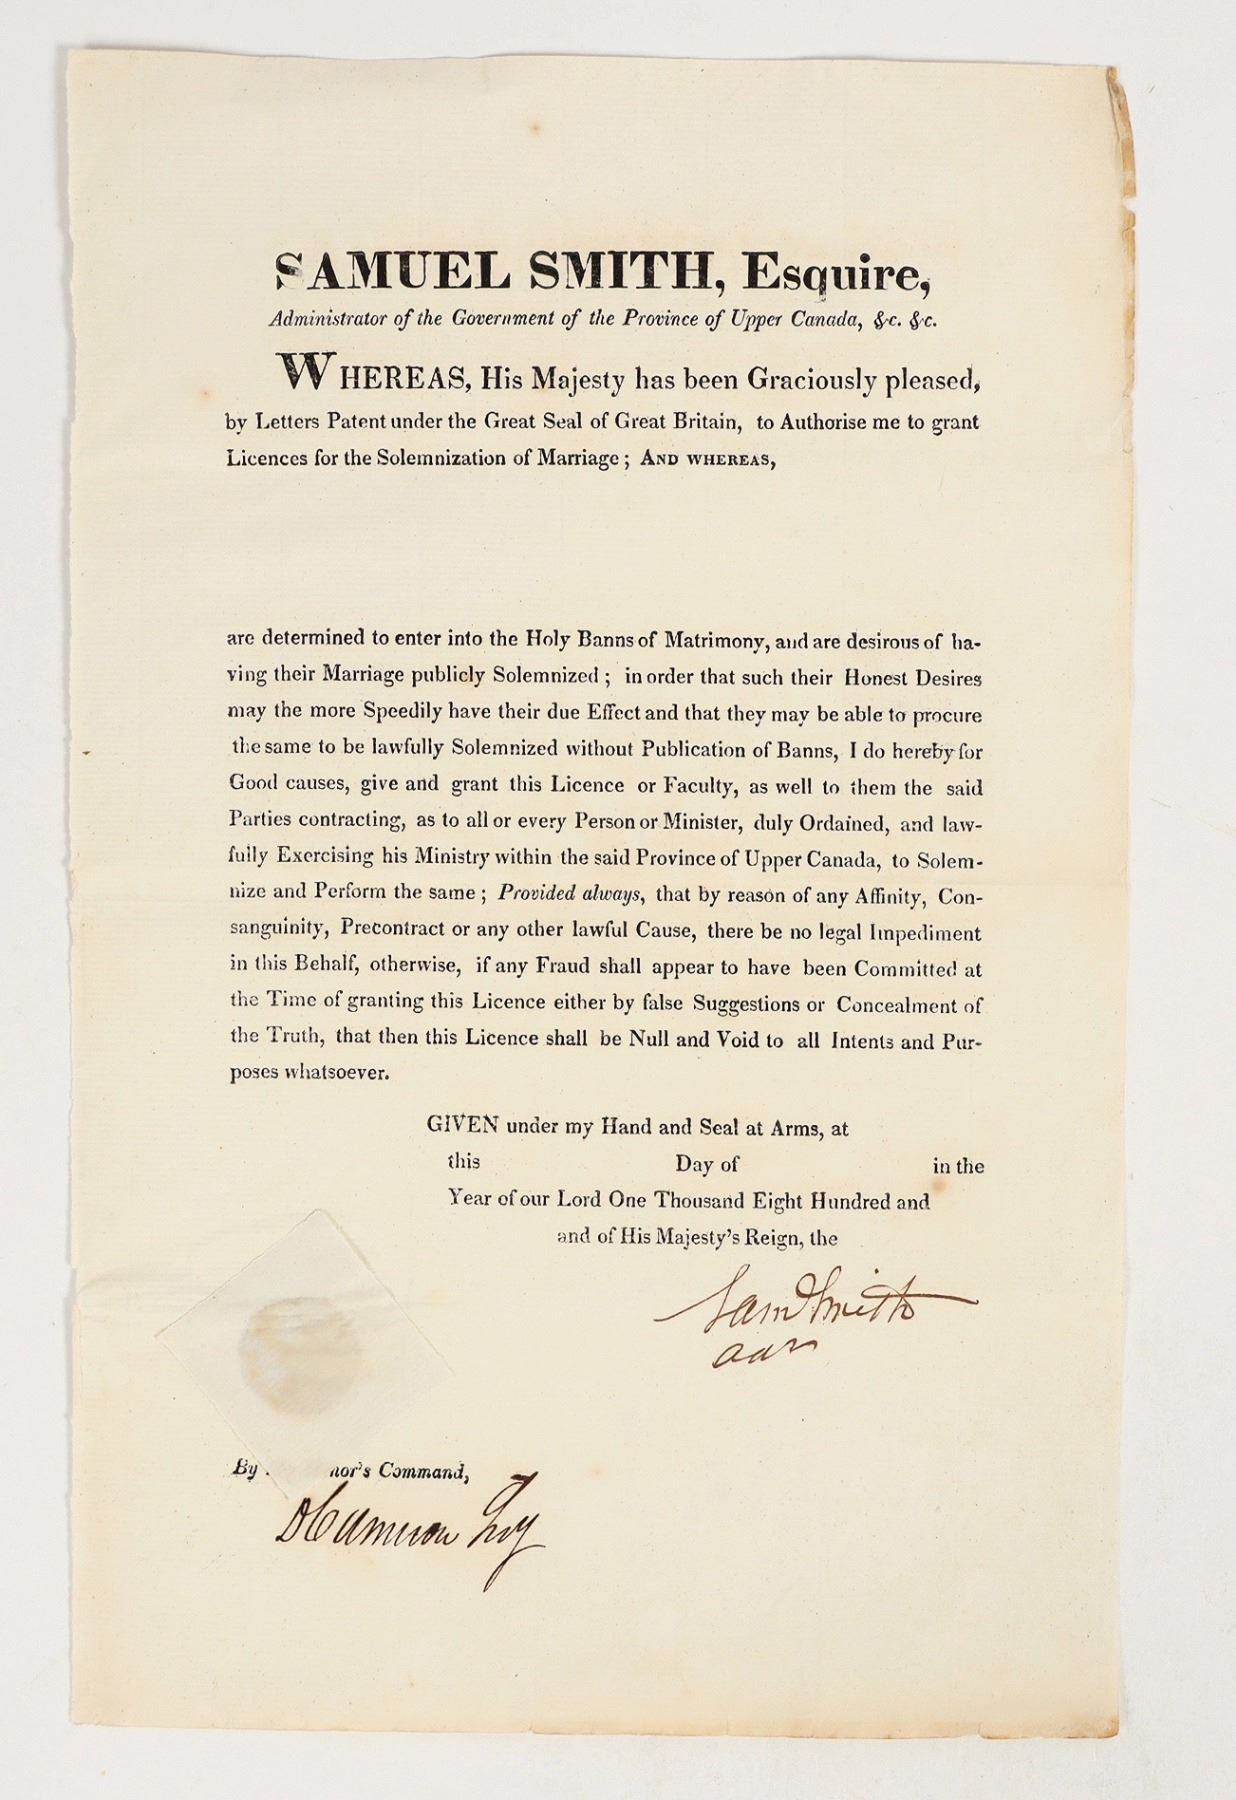 SAMUEL SMITH, Esquire,
Administrator of the Government of the Province of Upper Canada, &c. &c.
WHEREAS, His Majesty has been Graciously pleased,
by Letters Patent under the Great Seal of Great Britain, to Authorise me to grant
Licences for the Solemnization of Marriage ; AND WHEREAS,
are determined to enter into the Holy Banns of Matrimony, and are desirous of ha-
ving their Marriage publicly Solemnized ; in order that such their Honest Desires
may the more Speedily have their due Effect and that they may be able to procure
the same to be lawfully Solemnized without Publication of Banns, I do hereby for
Good causes, give and grant this Licence or Faculty, as well to them the said
Parties contracting, as to all or every Person or Minister, duly Ordained, and law-
fully Exercising his Ministry within the said Province of Upper Canada, to Solem-
nize and Perform the same ; Provided always, that by reason of any Affinity, Con-
sanguinity, Precontract or any other lawful Cause, there be no legal Impediment
in this Behalf, otherwise, if any Fraud shall appear to have been Committed at
the Time of granting this Licence either by false Suggestions or Concealment of
the Truth, that then this Licence shall be Null and Void to all Intents and Pur-
poses whatsoever.
GIVEN under my Hand and Seal at Arms, at
this Day of in the
Year of our Lord One Thousand Eight Hundred and
and of His Majesty's Reign, the
Saml Smith
By nor's Command,
D Cameron